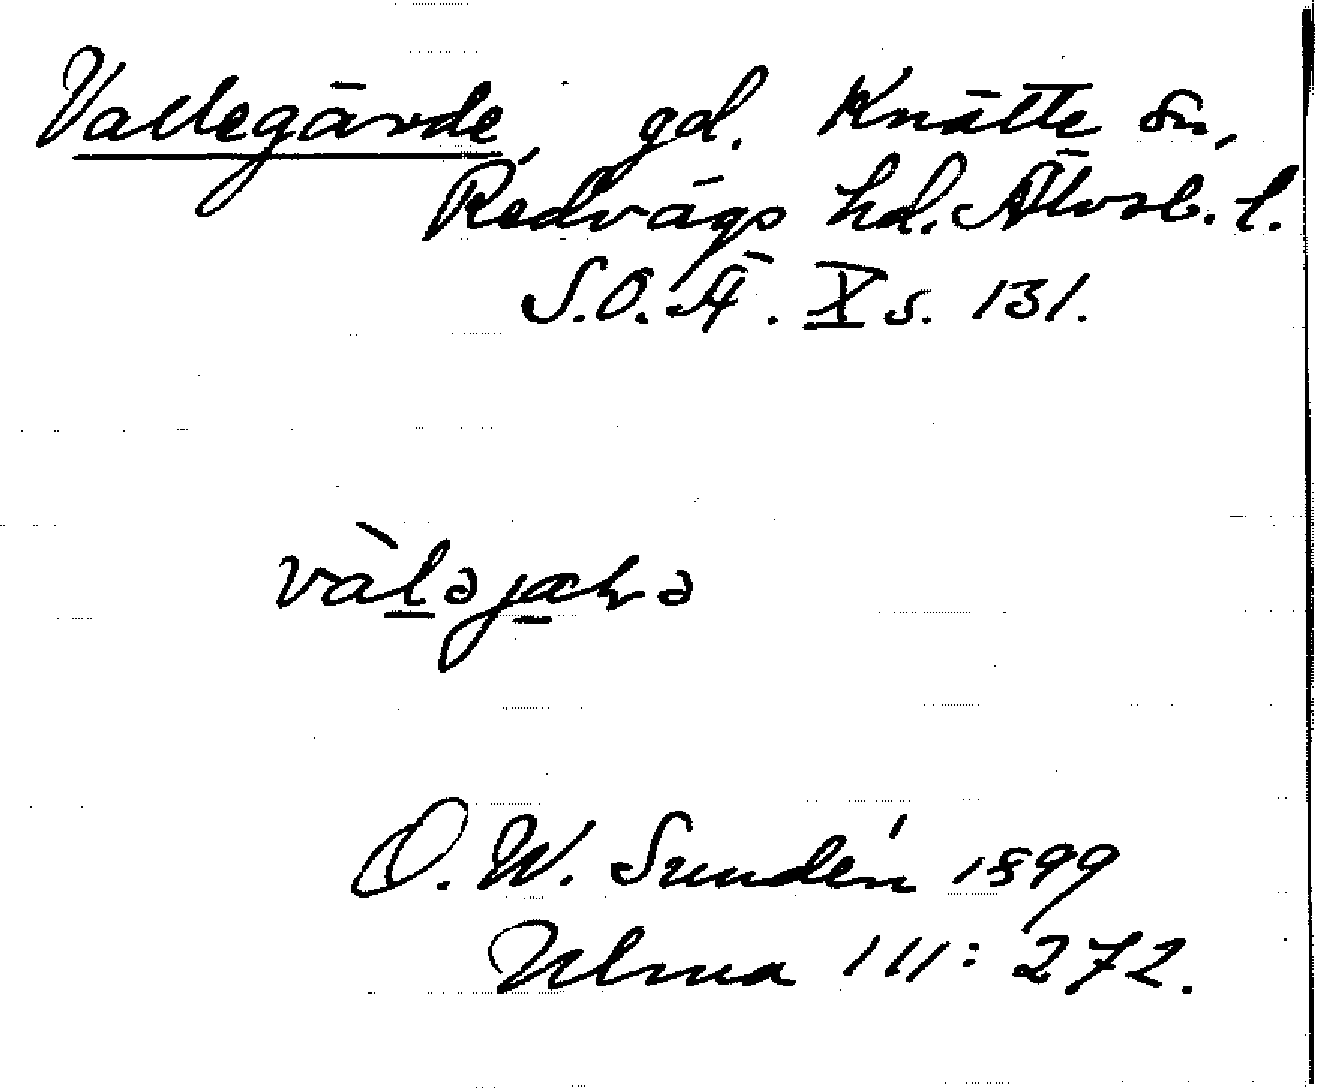 Vallegärde, gd. Knätte sn,
Redvägs hd. Älvsb. l.
S.O.Ä. X s. 131.
O. W. Sundén 1899
Ulma 111: 272.